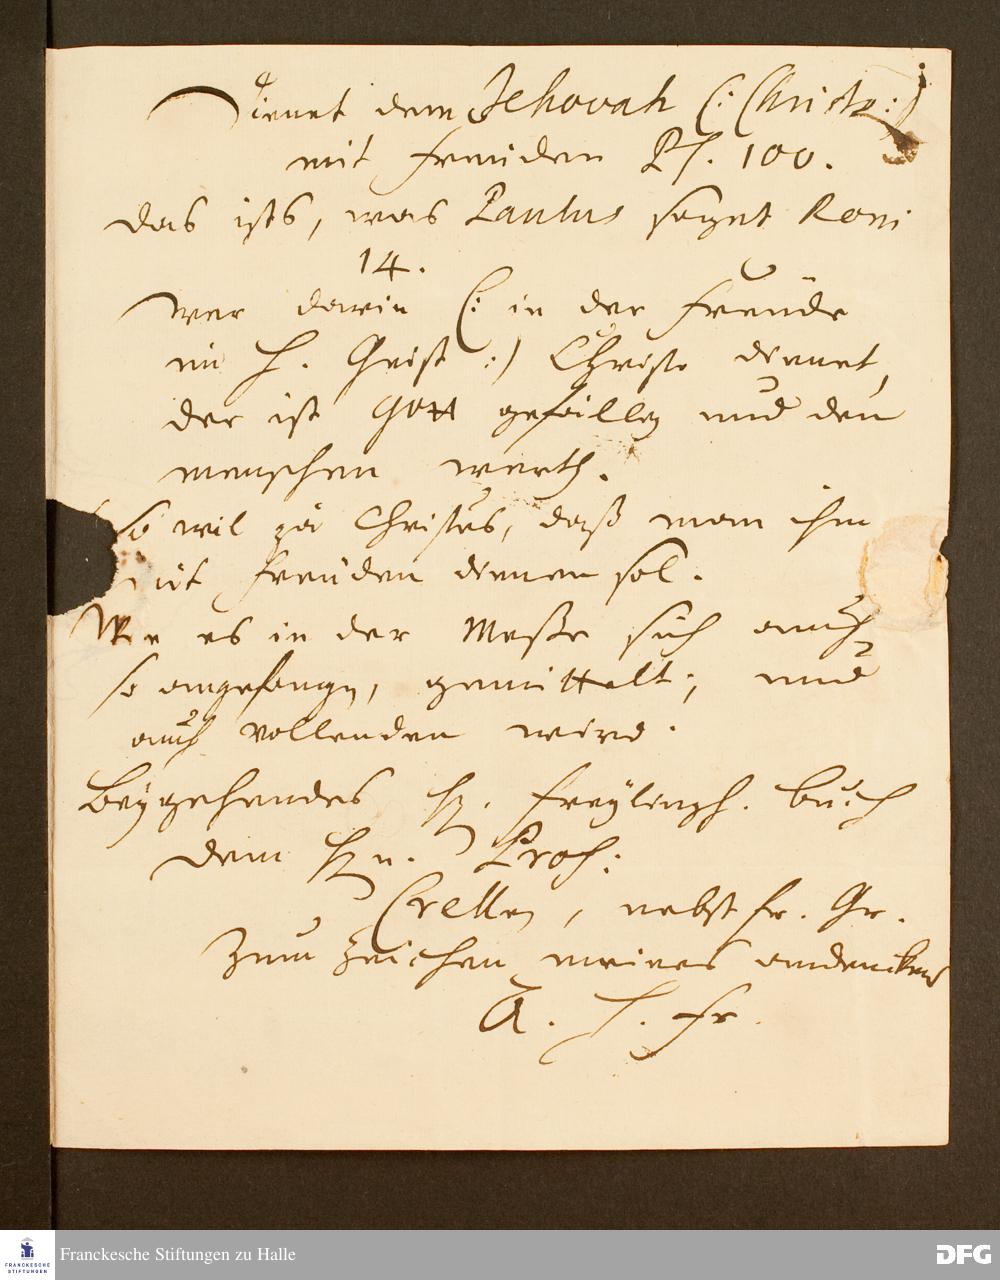 Dienet dem Jehovah (: Christo :)
mit freuden Ps. 100.
das ists, was Paulus saget Rom:
14.
Wer darin (: in der freude
im H. Geist :) Christo dienet,
der ist Gott gefällig und den
menschen werth.
so wil ja Christus, daß man ihm
mit freuden dienen sol.
Wie es in der Meße sich auch
so angefangen, gemittelt, und
auch vollenden wird.
Beygehendes H. Freylingh. buch
dem Hn. Prof:
Crellen, nebst fr. Gr.
Zum Zeichen meines andenckens
A. H. Fr.
Franckesche Stiftungen zu Halle
FRANCKESCHE
STIFTUNGEN
DFG